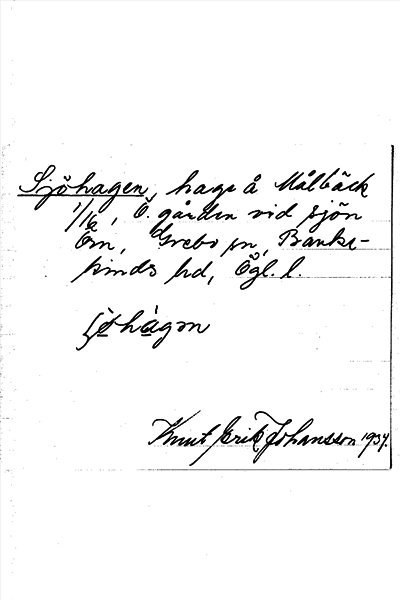 Sjöhagen, hage å Målbäck
1/16, Ö. gården vid sjön
Ören, Grebo sn, Banke-
kinds hd, Ögl. l.
Knut Erik Johansson 1934.